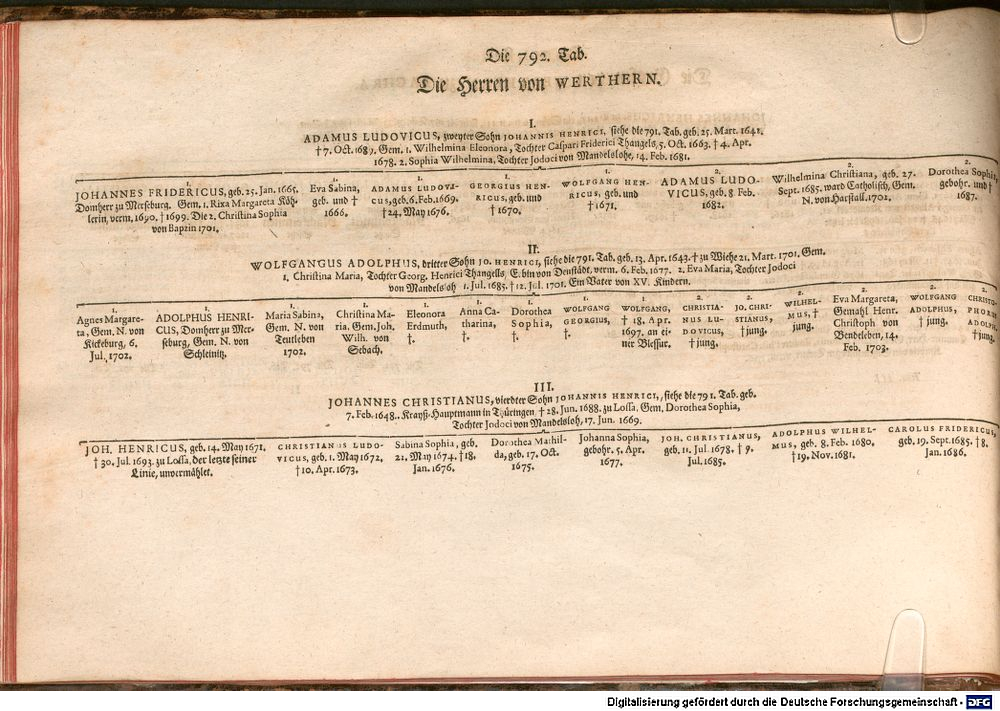 Die 792. Tab.
Die Herren von WERTHERN.
I.
ADAMUS LUDOVICUS, zweyter Sohn JOHANNIS HENRICI, siehe die 791. Tab. geb. 25. Mart. 1641.
† 7. Oct. 1689. Gem. 1. Wilhelmina Eleonora, Tochter Caspari Friderici Thangels, 5. Oct. 1663. † 4. Apr.
1678. 2. Sophia Wilhelmina, Tochter Jodoci von Mandelslohe, 14. Feb. 1681.
1.
JOHANNES FRIDERICUS, geb. 25. Jan. 1665.
Domherr zu Merseburg. Gem. 1. Rixa Margareta Köh-
lerin, verm. 1690. † 1699. Die 2. Christina Sophia
von Bapzin 1701.
1.
Eva Sabina,
geb. und †
1666.
1.
ADAMUS LUDOVI-
CUS, geb. 6. Feb. 1669.
† 24. May 1676.
1.
GEORGIUS HEN-
RICUS, geb. und
† 1670.
1.
WOLFGANG HEN-
RICUS, geb. und
† 1671.
2.
ADAMUS LUDO-
VICUS, geb. 8 Feb.
1682.
2.
Wilhelmina Christiana, geb. 27.
Sept. 1685. ward Catholisch, Gem.
N. von Harstall. 1702.
2.
Dorothea Sophia,
gebohr. und †
1687.
II.
WOLFGANGUS ADOLPHUS, dritter Sohn JO. HENRICI, siehe die 791. Tab. geb. 13. Apr. 1643. † zu Wiehe 21. Mart. 1701. Gem.
1. Christina Maria, Tochter Georg. Henrici Thangells, E. bin von Denstädt, verm. 6. Feb. 1677. 2. Eva Maria, Tochter Jodoci
von Mandelsloh 1. Jul. 1685. † 12. Jul. 1701. Ein Vater von XV. Kindern.
1.
Agnes Margare-
ta, Gem. N. von
Kieseburg, 6.
Jul, 1702.
1.
ADOLPHUS HENRI-
CUS, Domherr zu Mer-
seburg, Gem. N. von
Schleinitz.
1.
Maria Sabina,
Gem. N. von
Teutleben
1702.
1.
Christina Ma-
ria. Gem. Joh.
Wilh. von
Sebach.
1.
Eleonora
Erdmuth,
†.
1.
Anna Ca-
tharina,
†.
1.
Dorothea
Sophia,
†.
1.
WOLFGANG
GEORGIUS,
†.
1.
WOLFGANG,
† 18. Apr.
1697. an ei-
ner Blessur.
2.
CHRISTIA-
NUS LU-
DOVICUS,
† jung.
2.
JO. CHRI-
STIANUS,
† jung.
2.
WILHEL-
MUS, †
jung.
2.
Eva Margareta,
Gemahl Henr.
Christoph von
Bendeleben, 14.
Feb. 1703.
2.
WOLFGANG
ADOLPHUS,
† jung.
2.
CHRISTO-
PHORUS
ADOLPH,
† jung.
III.
JOHANNES CHRISTIANUS, vierdter Sohn JOHANNIS HENRICI, siehe die 791. Tab. geb.
7. Feb. 1648. Krayß-Hauptmann in Thüringen, † 28. Jun. 1688. zu Lossa. Gem. Dorothea Sophia,
Tochter Jodoci von Mandelsloh, 17. Jun. 1669.
JOH. HENRICUS, geb. 14. May 1671.
† 30. Jul. 1693. zu Lossa, der letzte seiner
Linie, unvermählet.
CHRISTIANUS LUDO-
VICUS, geb. 1. May 1672,
† 10. Apr. 1673.
Sabina Sophia, geb.
21. May 1674. † 18.
Jan. 1676.
Dorothea Mathil-
da, geb. 17. Oct.
1675.
Johanna Sophia,
gebohr. 5. Apr.
1677.
JOH. CHRISTIANUS,
geb. 11. Jul. 1678. † 9.
Jul. 1685.
ADOLPHUS WILHEL-
MUS, geb. 8. Feb. 1680.
† 19. Nov. 1681.
CAROLUS FRIDERICUS,
geb. 19. Sept. 1685. † 8.
Jan. 1686.
Digitalisierung gefördert durch die Deutsche Forschungsgemeinschaft - DFG